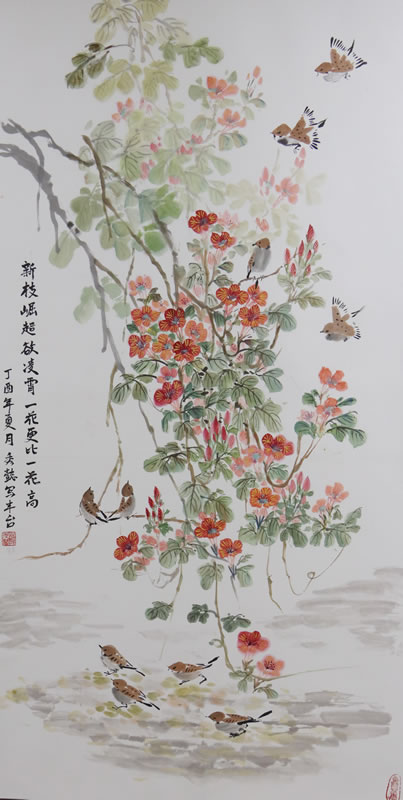 新枝崛超欲凌霄一花更比一花高
丁酉年夏月秀懿写丰台